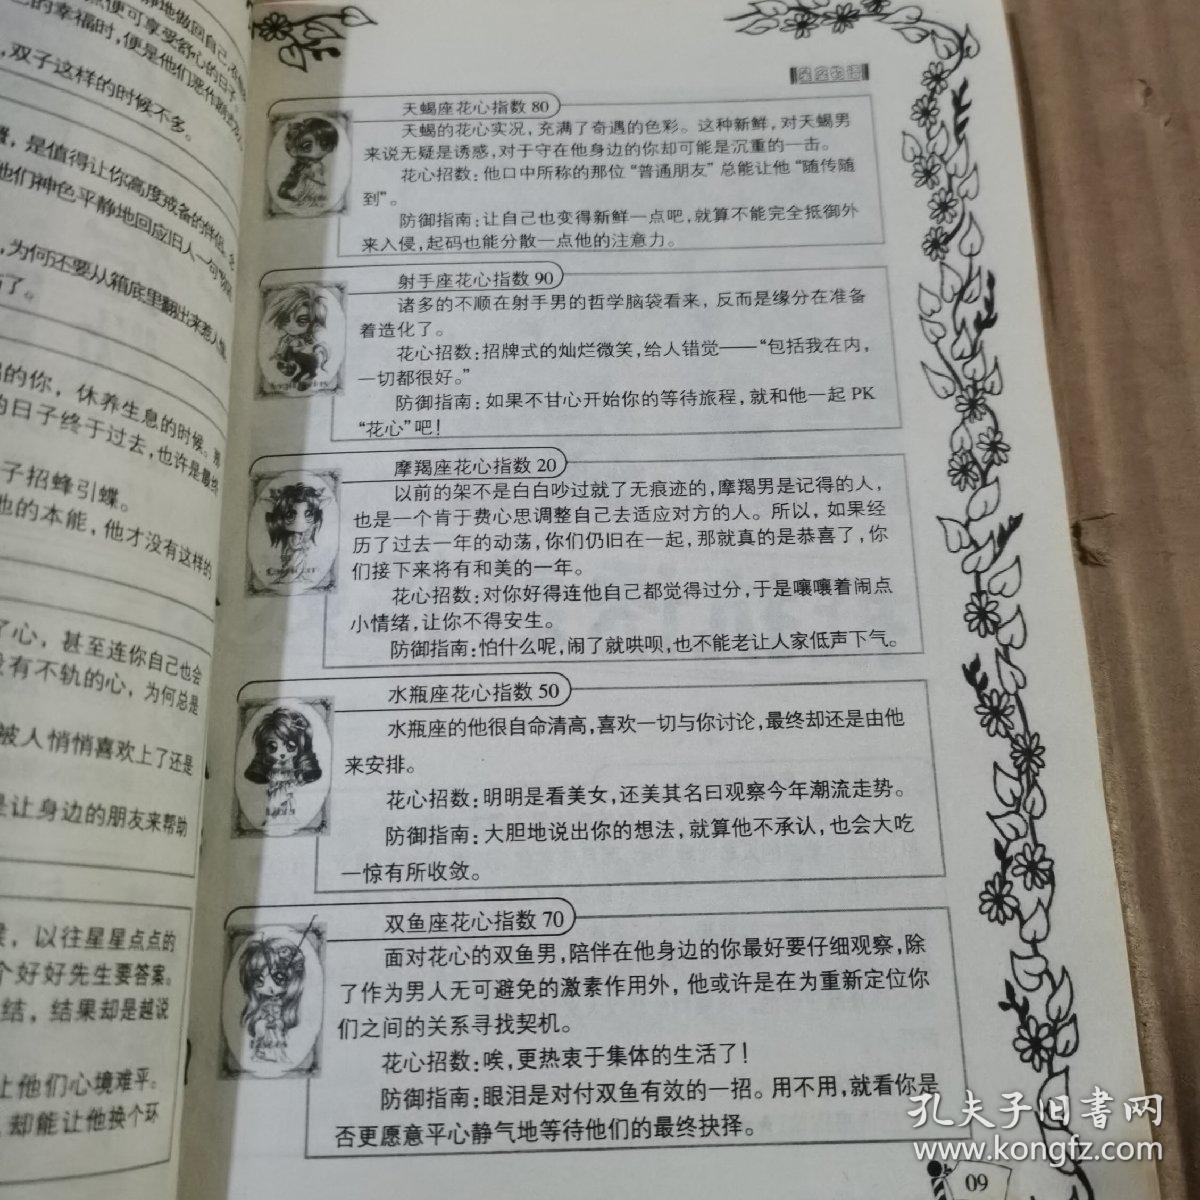 静地做回自己,
点便可享受舒心的日子。
的幸福时,便是他们恶作
双子这样的时候不多。
是值得让你高度戒备的伴侣。
他们神色平静地回应旧人一句
为何还要从箱底里翻出来惹人
了。
的你,休养生息的时候。那
的日子终于过去,也许是最终
子招蜂引蝶。
他的本能,他才没有这样的
了心,甚至连你自己也会
没有不轨的心,为何总是
被人悄悄喜欢上了还是
是让身边的朋友来帮助
,以往星星点点的
个好好先生要答案。
结,结果却是越说
让他们心境难平。
却能让他换个环
天蝎座花心指数 80
天蝎的花心实况,充满了奇遇的色彩。这种新鲜,对天蝎男
来说无疑是诱惑,对于守在他身边的你却可能是沉重的一击。
花心招数:他口中所称的那位“普通朋友”总能让他“随传随
到”。
防御指南:让自己也变得新鲜一点吧,就算不能完全抵御外
来入侵,起码也能分散一点他的注意力。
射手座花心指数 90
诸多的不顺在射手男的哲学脑袋看来,反而是缘分在准备
着造化了。
花心招数:招牌式的灿烂微笑,给人错觉——“包括我在内,
一切都很好。”
防御指南:如果不甘心开始你的等待旅程,就和他一起 PK
“花心”吧!
摩羯座花心指数 20
以前的架不是白白吵过就了无痕迹的,摩羯男是记得的人,
也是一个肯于费心思调整自己去适应对方的人。所以,如果经
历了过去一年的动荡,你们仍旧在一起,那就真的是恭喜了,你
们接下来将有和美的一年。
花心招数:对你好得连他自己都觉得过分,于是嚷嚷着闹点
小情绪,让你不得安生。
防御指南:怕什么呢,闹了就哄呗,也不能老让人家低声下气。
水瓶座花心指数 50
水瓶座的他很自命清高,喜欢一切与你讨论,最终却还是由他
来安排。
花心招数:明明是看美女,还美其名曰观察今年潮流走势。
防御指南:大胆地说出你的想法,就算他不承认,也会大吃
一惊有所收敛。
双鱼座花心指数 70
面对花心的双鱼男,陪伴在他身边的你最好要仔细观察,除
了作为男人无可避免的激素作用外,他或许是在为重新定位你
们之间的关系寻找契机。
花心招数:唉,更热衷于集体的生活了!
防御指南:眼泪是对付双鱼有效的一招。用不用,就看你是
否更愿意平心静气地等待他们的最终抉择。
09
孔夫子旧书网
www.kongfz.com